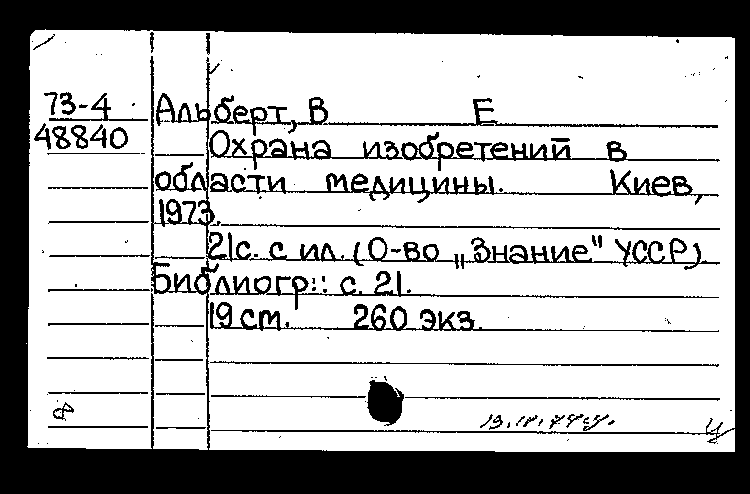 73-4 Альберт, В Е
48840
Охрана изобретений в
области медицины. Киев,
1973.
21с. с ил. (О-во „Знание" УССР).
Библиогр.: с. 21.
19 см. 260 экз.
ф
ц